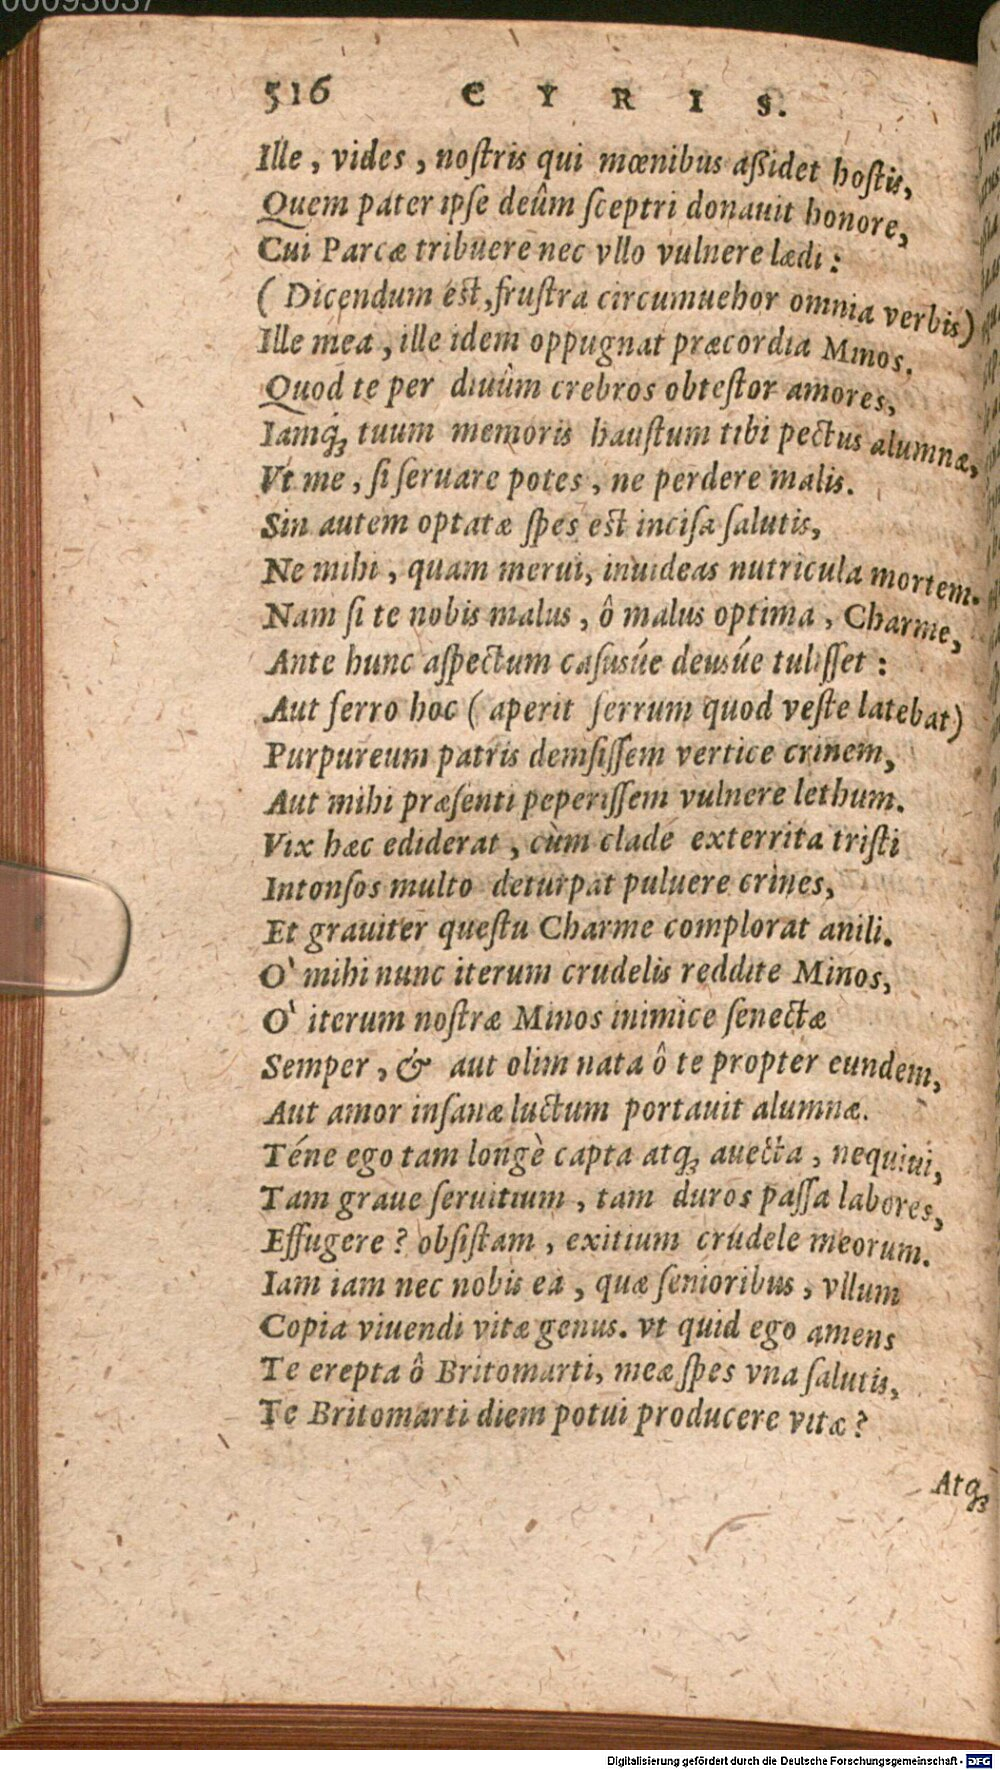 00093037
516 C Y R I S.
Ille, vides, noſtris qui mœnibus aßidet hoſtis,
Quem pater ipſe deûm ſceptri donauit honore,
Cui Parcæ tribuere nec vllo vulnere lædi:
(Dicendum est, fruſtra circumuehor omnia verbis)
Ille mea, ille idem oppugnat præcordia Minos.
Quod te per diuûm crebros obteſtor amores,
Iamq́ꝫ tuum memoris hauſtum tibi pectus alumnæ,
Vt me, ſi ſeruare potes, ne perdere malis.
Sin autem optatæ ſpes est inciſa ſalutis,
Ne mihi, quam merui, inuideas nutricula mortem.
Nam ſi te nobis malus, ô malus optima, Charme,
Ante hunc aſpectum caſusúe deusúe tuliſſet:
Aut ferro hoc (aperit ferrum quod veſte latebat)
Purpureum patris demſiſſem vertice crinem,
Aut mihi præſenti peperiſſem vulnere lethum.
Vix hæc ediderat, cùm clade exterrita triſti
Intonſos multo deturpat puluere crines,
Et grauiter queſtu Charme complorat anili.
O' mihi nunc iterum crudelis reddite Minos,
O' iterum noſtræ Minos inimice ſenectæ
Semper, & aut olim nata ô te propter eundem,
Aut amor inſanæ luctum portauit alumnæ.
Téne ego tam longè capta atqꝫ auecta, nequiui,
Tam graue ſeruitium, tam duros paſſa labores,
Effugere? obſiſtam, exitium crudele meorum.
Iam iam nec nobis ea, quæ ſenioribus, vllum
Copia viuendi vitæ genus. vt quid ego amens
Te erepta ô Britomarti, meæ ſpes vna ſalutis,
Te Britomarti diem potui producere vitæ?
Atqꝫ
Digitalisierung gefördert durch die Deutsche Forschungsgemeinschaft - DFG